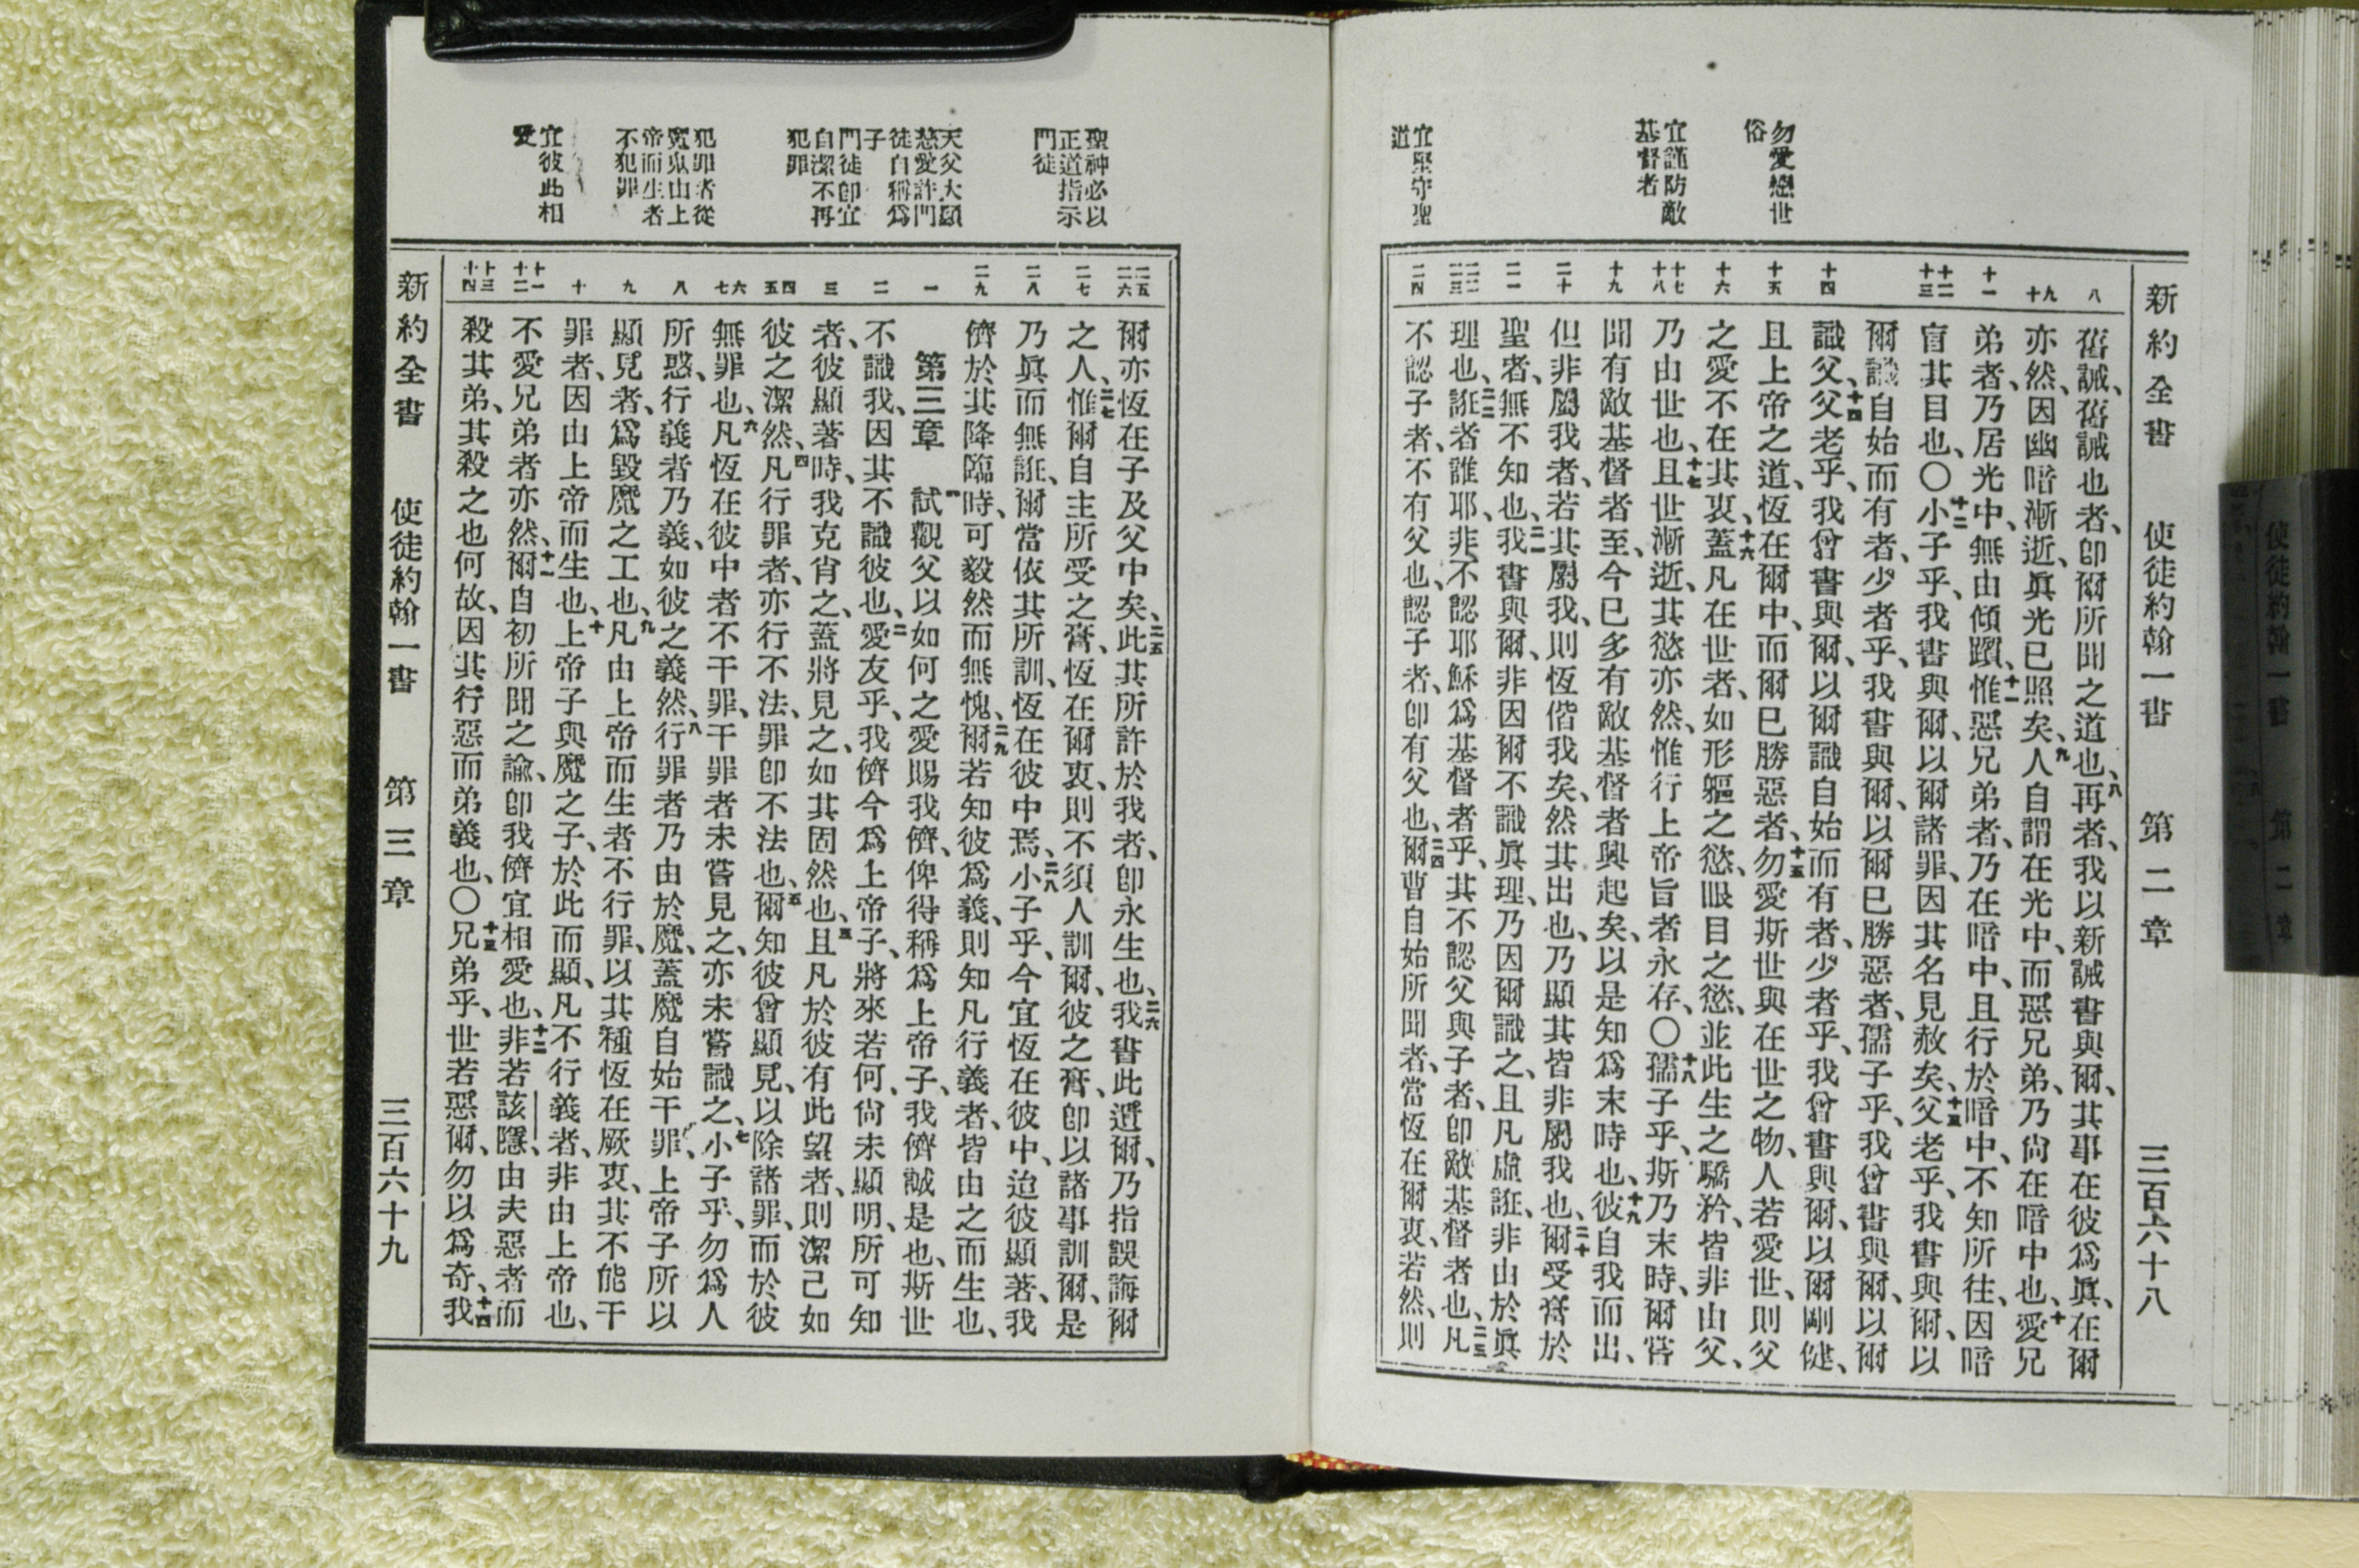 新約全書 使徒約翰一書 第二章 三百六十八
勿愛戀世
俗
宜謹防敵
基督者
宜堅守聖
道
八
九
十
十一
十二
十三
十四
十五
十六
十七
十八
十九
二十
二一
二二
二三
二四
舊誡、舊誡也者、卽爾所聞之道也、八再者、我以新誡書與爾、其事在彼爲眞、在爾
亦然、因幽暗漸逝、眞光已照矣、九人自謂在光中、而惡兄弟、乃尙在暗中也、十愛兄
弟者、乃居光中、無由傾躓、十一惟惡兄弟者、乃在暗中、且行於暗中、不知所往、因暗
盲其目也、〇十二小子乎、我書與爾、以爾諸罪、因其名見赦矣、十三父老乎、我書與爾、以
爾識自始而有者、少者乎、我書與爾、以爾已勝惡者、孺子乎、我曾書與爾、以爾
識父、十四父老乎、我曾書與爾、以爾識自始而有者、少者乎、我曾書與爾、以爾剛健、
且上帝之道、恆在爾中、而爾已勝惡者、十五勿愛斯世與在世之物、人若愛世、則父
之愛不在其衷、十六蓋凡在世者、如形軀之慾、眼目之慾、並此生之驕矜、皆非由父、
乃由世也、十七且世漸逝、其慾亦然、惟行上帝旨者永存、〇十八孺子乎、斯乃末時、爾嘗
聞有敵基督者至、今已多有敵基督者興起矣、以是知爲末時也、十九彼自我而出、
但非屬我者、若其屬我、則恆偕我矣、然其出也、乃顯其皆非屬我也、二十爾受膏於
聖者、無不知也、二一我書與爾、非因爾不識眞理、乃因爾識之、且凡虛誑、非由於眞
理也、二二誑者誰耶、非不認耶穌爲基督者乎、其不認父與子者、卽敵基督者也、二三凡
不認子者、不有父也、認子者、卽有父也、二四爾曹自始所聞者、當恆在爾衷、若然、則
聖神必以
正道指示
門徒
天父大顯
慈愛許門
徒自稱爲
子
門徒卽宜
自潔不再
犯罪
犯罪者從
寃鬼由上
帝而生者
不犯罪
宜彼此相
愛
二五
二六
二七
二八
二九
一
二
三
四
五
六
七
八
九
十
十一
十二
十三
十四
爾亦恆在子及父中矣、二五此其所許於我者、卽永生也、二六我書此遺爾、乃指誤誨爾
之人、二七惟爾自主所受之膏、恆在爾衷、則不須人訓爾、彼之膏、卽以諸事訓爾、是
乃眞而無誑、爾當依其所訓、恆在彼中焉、二八小子乎、今宜恆在彼中、迨彼顯著、我
儕於其降臨時、可毅然而無愧、二九爾若知彼爲義、則知凡行義者、皆由之而生也、
第三章 一試觀父以如何之愛賜我儕、俾得稱爲上帝子、我儕誠是也、斯世
不識我、因其不識彼也、二愛友乎、我儕今爲上帝子、將來若何、尙未顯明、所可知
者、彼顯著時、我克肖之、蓋將見之、如其固然也、三且凡於彼有此望者、則潔己如
彼之潔然、四凡行罪者、亦行不法、罪卽不法也、五爾知彼曾顯見、以除諸罪、而於彼
無罪也、六凡恆在彼中者不干罪、干罪者未嘗見之、亦未嘗識之、七小子乎、勿爲人
所惑、行義者乃義、如彼之義然、八行罪者乃由於魔、蓋魔自始干罪、上帝子所以
顯見者、爲毀魔之工也、九凡由上帝而生者不行罪、以其種恆在厥衷、其不能干
罪者、因由上帝而生也、十上帝子與魔之子、於此而顯、凡不行義者、非由上帝也、
不愛兄弟者亦然、十一爾自初所聞之諭、卽我儕宜相愛也、十二非若該隱、由夫惡者而
殺其弟、其殺之也何故、因其行惡而弟義也、〇十三兄弟乎、世若惡爾、勿以爲奇、十四我
新約全書 使徒約翰一書 第三章 三百六十九
使徒約翰一書 第二章